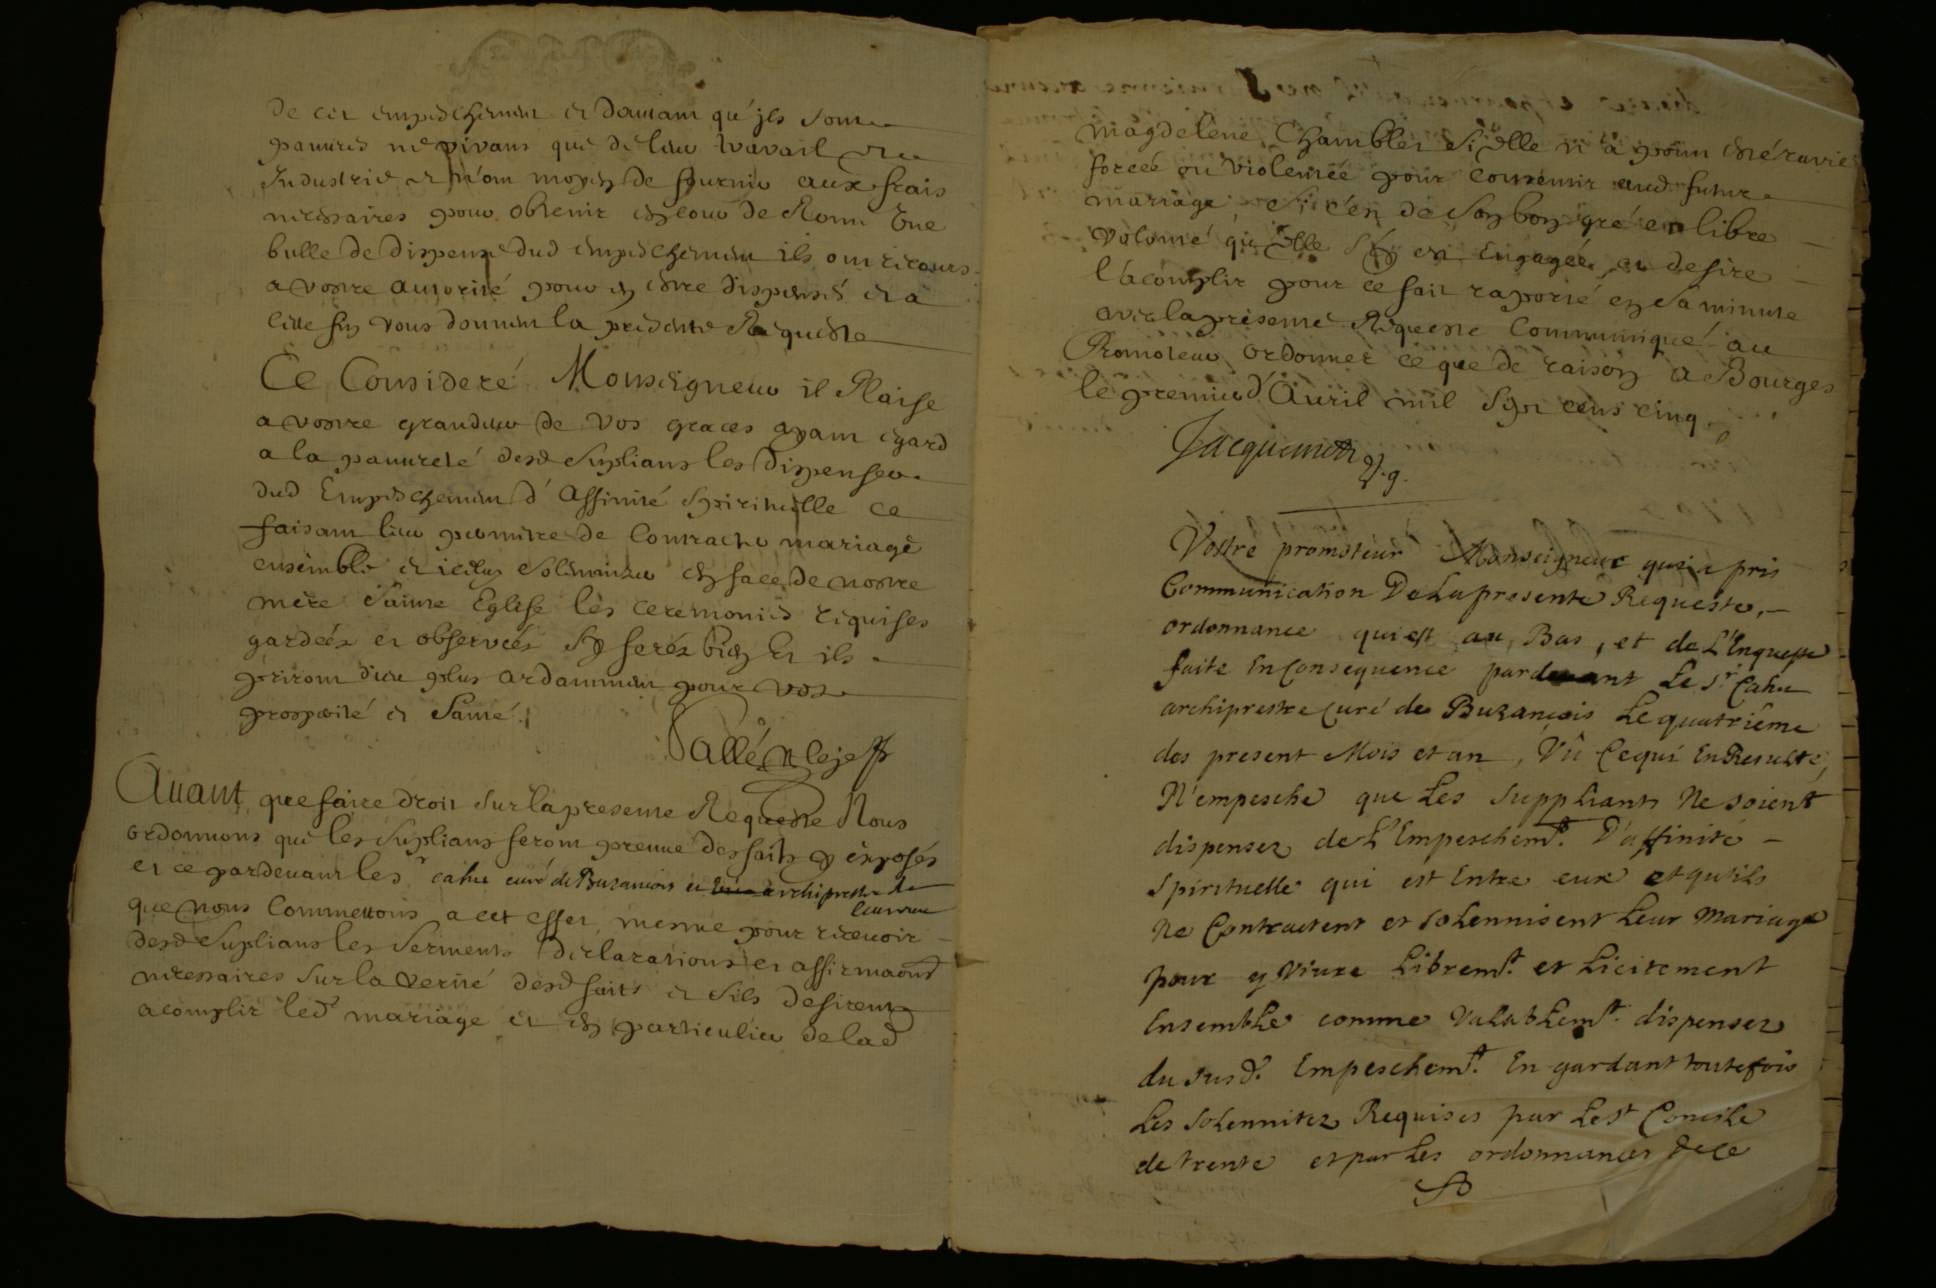 de cet empeschement et dautant qu'jls sont
pauures ne vivans que de leur travail et
Industrie et n'ont moyen de fournir aux frais
necessaires pour obtenir en cour de Rome Une
bulle de dispense dud empeschement ils ont recours
a vostre autorité pour en estre dispensés et a
cette fin vous donnent la presente Requeste
Ce Consideré Monseigneur il Plaise
a vostre grandeur de vos graces ayant egard
a la pauureté desd Suplians les dispenser
dud Empeschement d'Affinité Spirituelle ce
faisant leur permettre de Contracter mariage
ensemble et iceluy Solemnizer en face de nostre
mere Sainte Eglise les ceremonies requises
gardées et observées Sy ferés bien Et ils
priront dieu plus ardamment pour vostre
prosperité et Santé
Auant que faire droit sur la presente Requeste Nous
ordonnons que les Suplians feront preuue des faits y exposés
et ce pardeuant le sr cahu curé de Buzançois et archiprestre de
que nous Commettons a cet effet, mesme pour receuoir
desd Suplians les Serments Declarations et affirmaons
necessaires sur la verité desd faits et S'ils desirent
acomplir led mariage et en particulier de lad
magdelene Chamblet Si Elle n'a point esté ravie
forcée ou violentée pour consentir aud futur
mariage et Si c'est de Son bon gré et libre
Volonté qu'Elle S'y est Engagée et desire
l'acomplir pour ce fait raporté en Sa minute
avec la presente Requeste Communiqué au
Promoteur ordonner ce que de raison a Bourges
le premier d'Auril mil Sept cens cinq
Jacquemet v. g.
Vostre promoteur Monseigneur qui a pris
Communication De La presente Requeste,
ordonnance qui est au Bas, et de L'Enqueste
faite En Consequence pardeuant Le Sr Cahu
archiprestre Curé de Buzançois Le quatriéme
des present Mois et an, Vû Ce qui En Resulte,
N'empesche que Les Suppliants Ne soient
dispensez de L'Empeschemt. D'affinité
Spirituelle qui est Entre eux et qu'ils
ne Contractent et solennisent Leur Mariage
pour y Viure Libremt. et Licitement
Ensemble comme Valablemt. dispensez
du susd. Empeschemt. En gardant toutefois
Les solennitez Requises par Le St Concile
de trente et par Les ordonnances de Ce